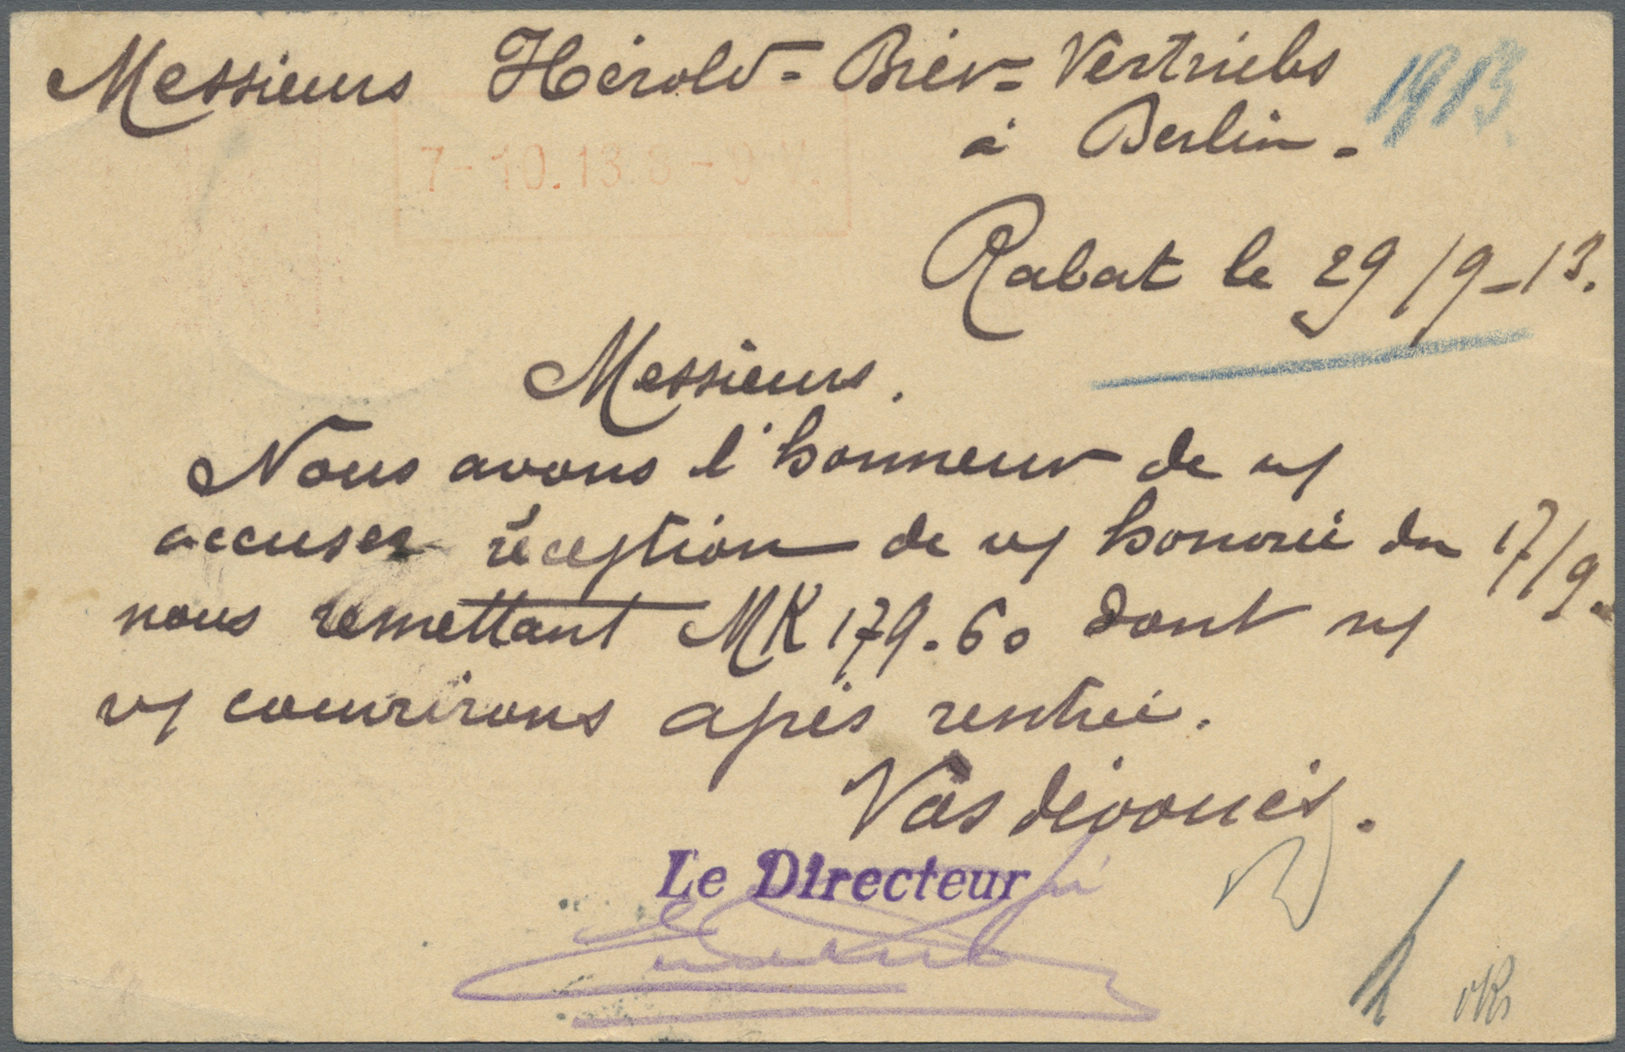 Messieurs Hérold - Bier = Vertriebs
1913
à Berlin.
7-10.13.8-9 V.
Rabat le 29/9-13.
Messieurs.
Nous avons l'honneur de v/
accuser réception de v/ honorée du 17/9.
nous remettant MK 179.60 dont n/
v/ couvrirons après rentrée.
Vos dévoués.
Le Directeur